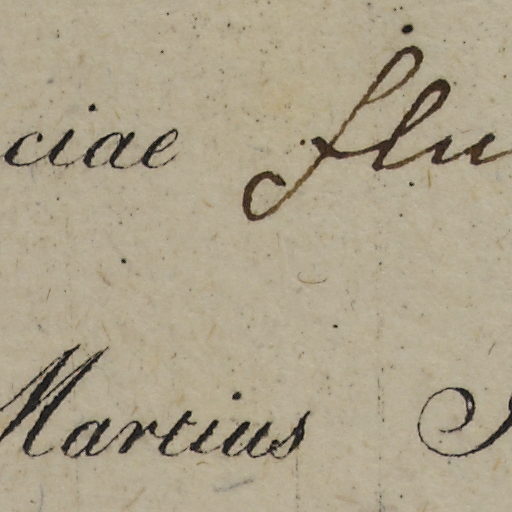 ciae flu
Martius